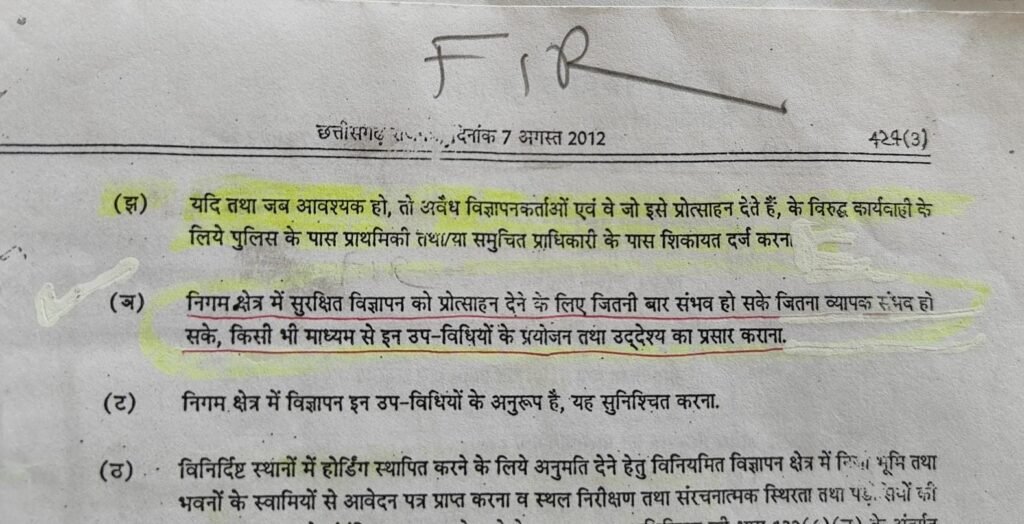 FIR
छत्तीसगढ़ दिनांक 7 अगस्त 2012 424(3)
(झ) यदि तथा जब आवश्यक हो, तो अवैध विज्ञापनकर्ताओं एवं वे जो इसे प्रोत्साहन देते हैं, के विरुद्ध कार्यवाही के
लिये पुलिस के पास प्राथमिकी तथा/या समुचित प्राधिकारी के पास शिकायत दर्ज करना
FIR
(ञ) निगम क्षेत्र में सुरक्षित विज्ञापन को प्रोत्साहन देने के लिए जितनी बार संभव हो सके जितना व्यापक संभव हो
सके, किसी भी माध्यम से इन उप-विधियों के प्रयोजन तथा उद्देश्य का प्रसार कराना.
(ट) निगम क्षेत्र में विज्ञापन इन उप-विधियों के अनुरूप है, यह सुनिश्चित करना.
(ठ) विनिर्दिष्ट स्थानों में होर्डिंग स्थापित करने के लिये अनुमति देने हेतु विनियमित विज्ञापन क्षेत्र में भूमि तथा
भवनों के स्वामियों से आवेदन पत्र प्राप्त करना व स्थल निरीक्षण तथा संरचनात्मक स्थिरता तथा की